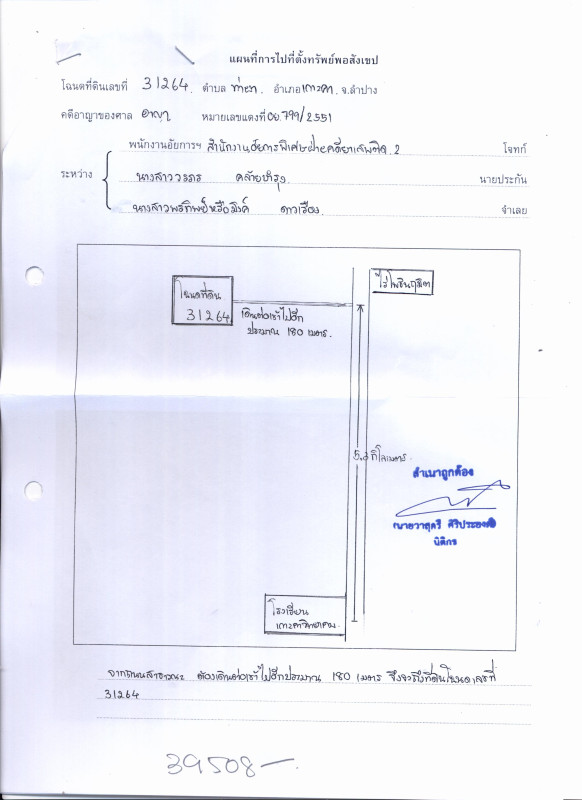 แผนที่การไปที่ตั้งทรัพย์พอสังเขป
โฉนดที่ดินเลขที่ 31264. ตำบล ท่าผา. อำเภอเกาะคา. จ.ลำปาง
คดีอาญาของศาล อาญา หมายเลขแดงที่ อย.799/2551
พนักงานอัยการฯ สำนักงานอัยการพิเศษฝ่ายคดียาเสพติด 2 โจทก์
ระหว่าง นางสาววรภร คล้ายบำรุง. นายประกัน
นางสาวพรทิพย์หรือมิงค์ ดาวเรือง. จำเลย
โฉนดที่ดิน
31264
ไร่
เดินต่อเข้าไปอีก
ประมาณ 180 เมตร.
กิโลเมตร
สำเนาถูกต้อง
นิติกร
โรงเรียน
เกาะคาวิทยาคม.
จากถนนสาธารณะ ต้องเดินต่อเข้าไปอีกประมาณ 180 เมตร จึงจะถึงที่ดินโฉนดเลขที่
31264
39508-